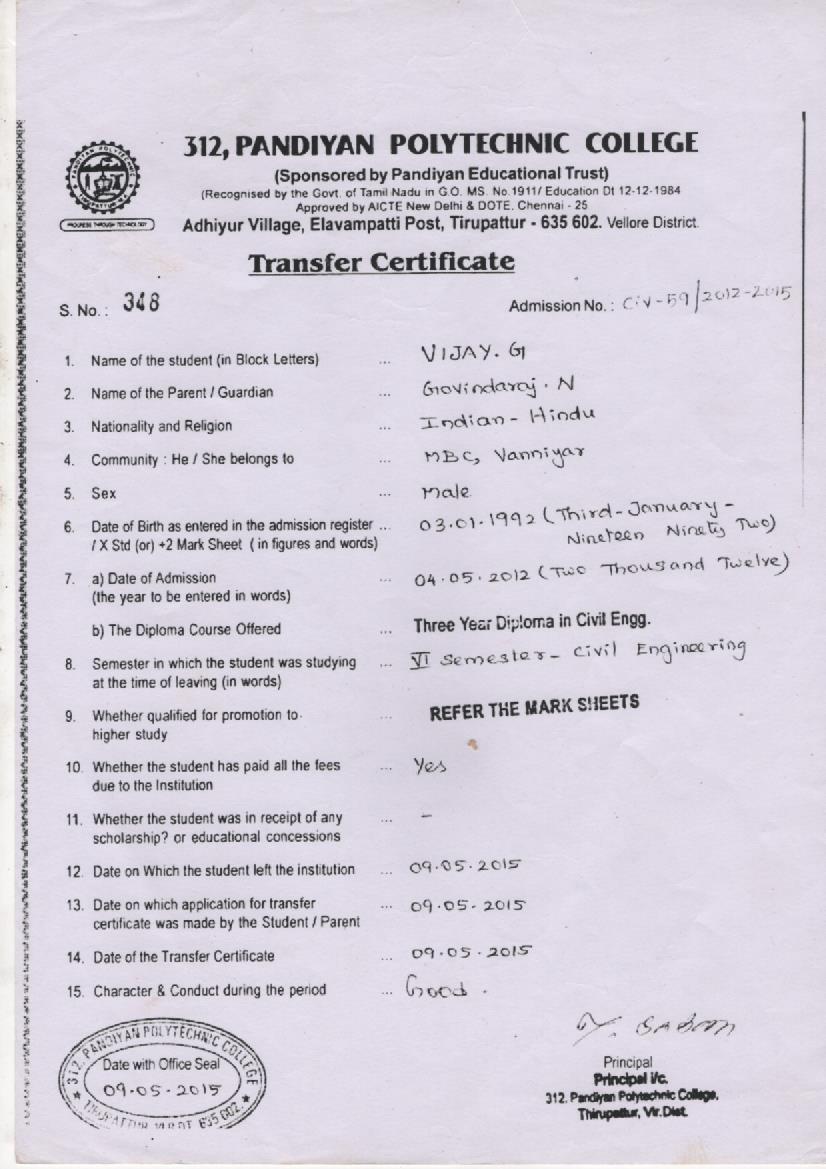 312, PANDIYAN POLYTECHNIC COLLEGE
(Sponsored by Pandiyan Educational Trust)
(Recognised by the Govt. of Tamil Nadu in G.O. MS. No.1911/ Education Dt 12-12-1984
Approved by AICTE New Delhi & DOTE, Chennai - 25
PROGRESS THROUGH TECHNOLOGY
Adhiyur Village, Elavampatti Post, Tirupattur - 635 602. Vellore District.
Transfer Certificate
S. No. : 348 Admission No. : CiV-59/2012-2015
1. Name of the student (in Block Letters) ... VIJAY. G
2. Name of the Parent / Guardian ... Govindaraj. N
3. Nationality and Religion ... Indian - Hindu
4. Community : He / She belongs to ... MBC, Vanniyar
5. Sex ... Male
6. Date of Birth as entered in the admission register ... 03.01.1992 (Third-January-
/ X Std (or) +2 Mark Sheet ( in figures and words) Nineteen Ninety Two)
7. a) Date of Admission ... 04.05.2012 (Two Thousand Twelve)
(the year to be entered in words)
b) The Diploma Course Offered ... Three Year Diploma in Civil Engg.
8. Semester in which the student was studying ... VI Semester - Civil Engineering
at the time of leaving (in words)
9. Whether qualified for promotion to ... REFER THE MARK SHEETS
higher study
10. Whether the student has paid all the fees ... Yes
due to the Institution
11. Whether the student was in receipt of any ... -
scholarship? or educational concessions
12. Date on Which the student left the institution ... 09.05.2015
13. Date on which application for transfer ... 09.05.2015
certificate was made by the Student / Parent
14. Date of the Transfer Certificate ... 09.05.2015
15. Character & Conduct during the period ... Good.
312, PANDIYAN POLYTECHNIC COLLEGE
Date with Office Seal
09.05.2015
635 602.
Principal
Principal i/c.
312. Pandiyan Polytechnic College,
Thirupattur, Vlr.Dist.